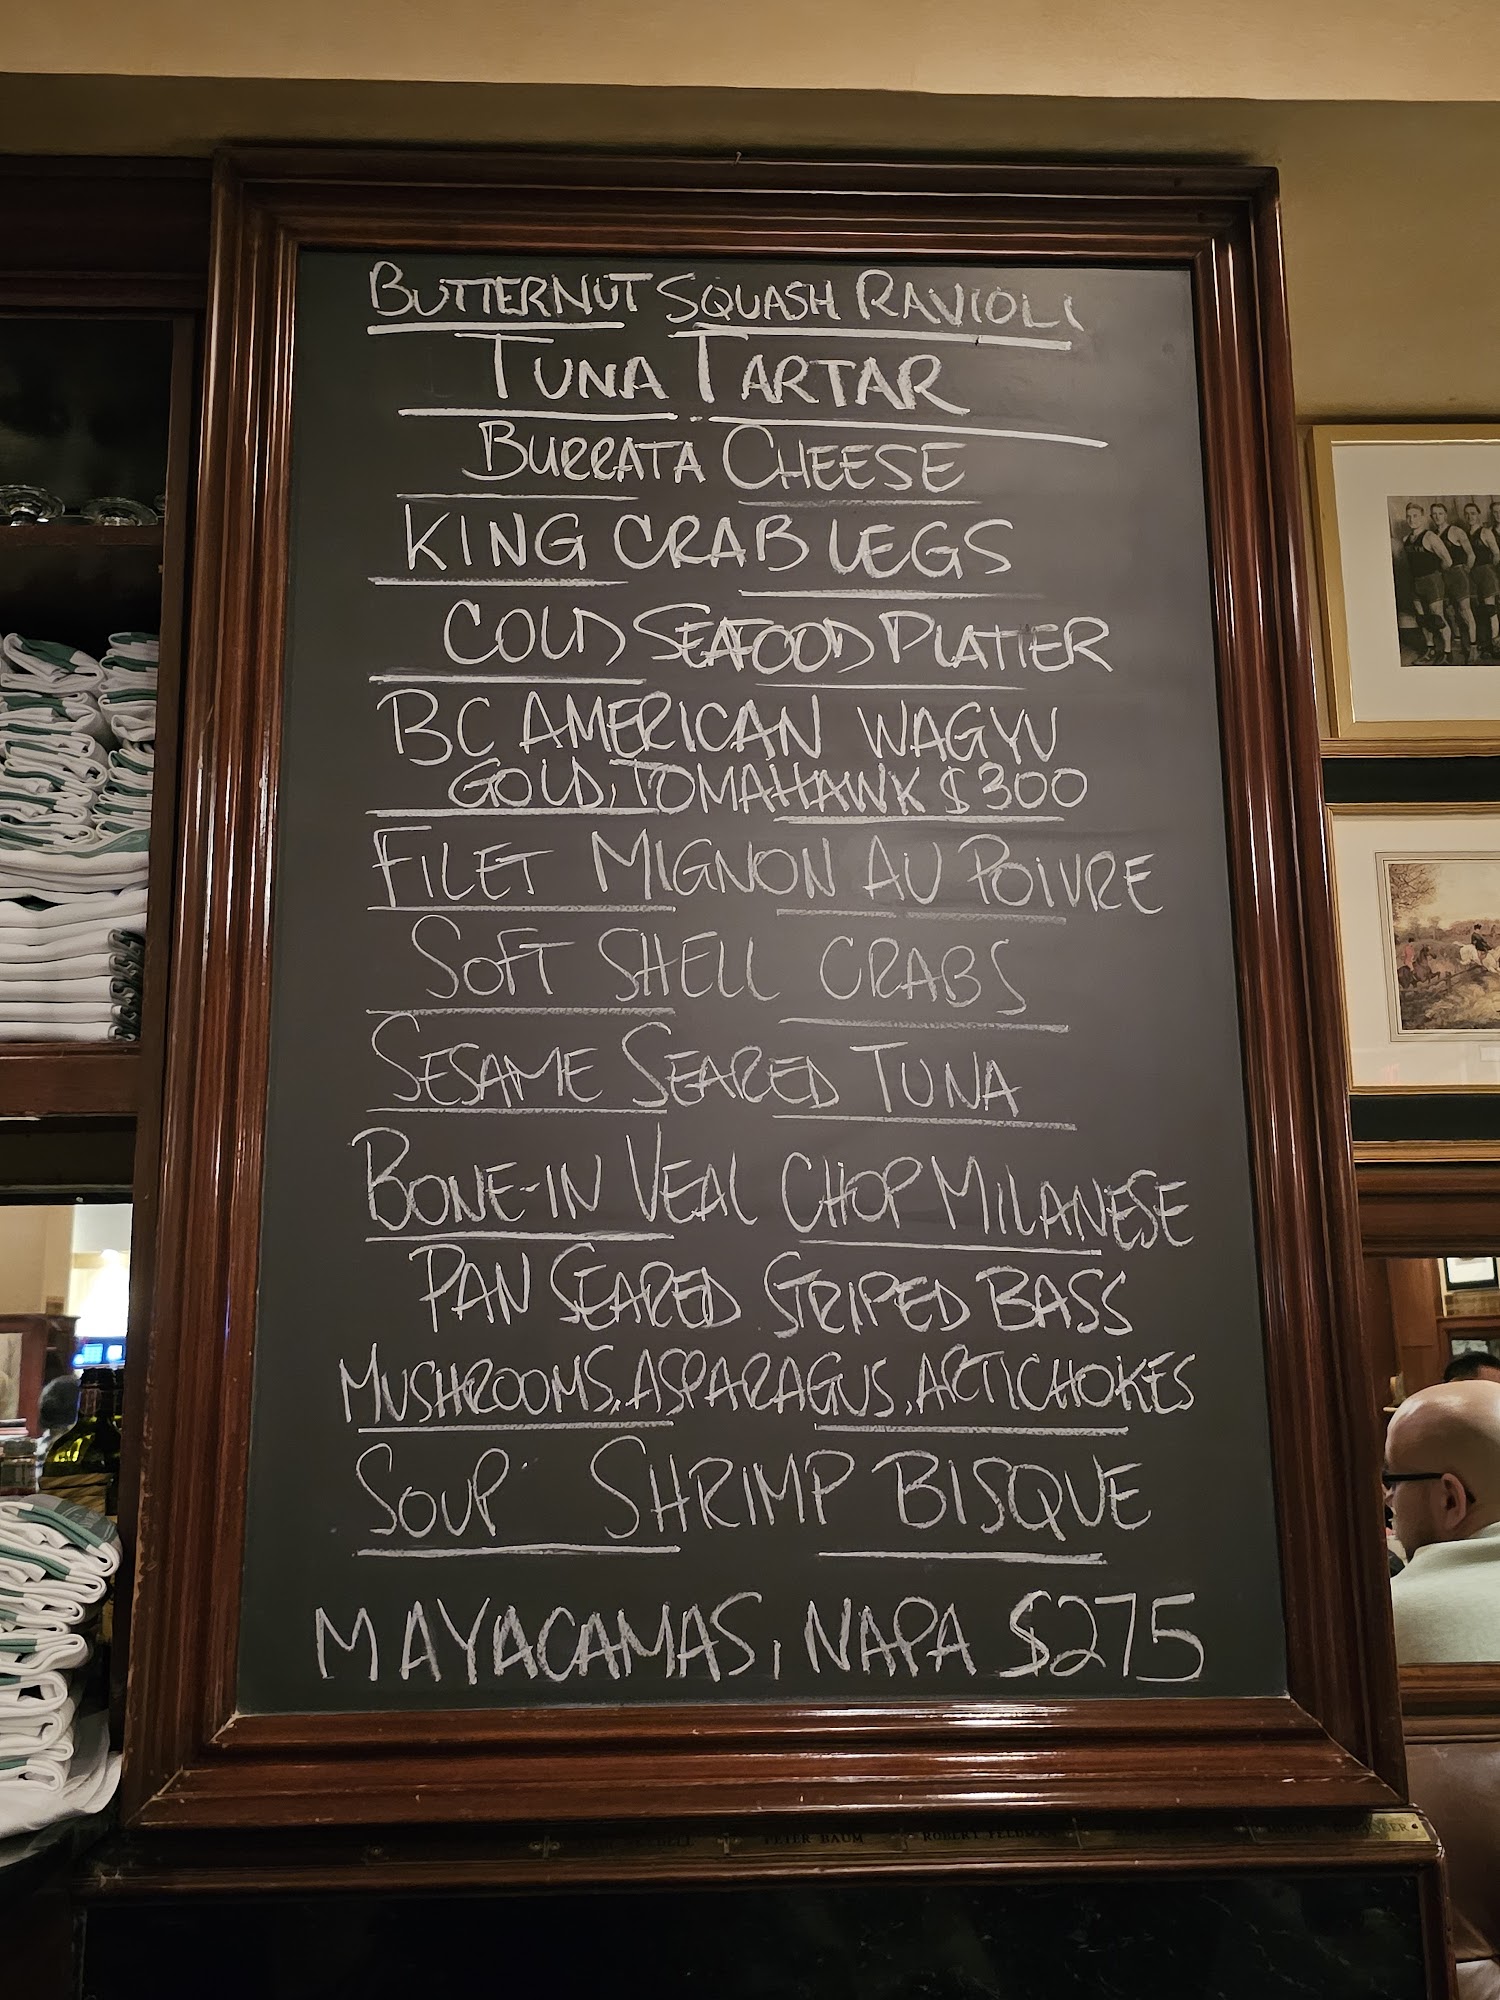 BUTTERNUT SQUASH RAVIOLI
TUNA TARTAR
BURRATA CHEESE
KING CRAB LEGS
COLD SEAFOOD PLATTER
BC AMERICAN WAGYU
GOLD, TOMAHAWK $300
FILET MIGNON AU POIVRE
SOFT SHELL CRABS
SESAME SEARED TUNA
BONE-IN VEAL CHOP MILANESE
PAN SEARED STRIPED BASS
MUSHROOMS, ASPARAGUS, ARTICHOKES
SOUP SHRIMP BISQUE
MAYACAMAS, NAPA $275
PETER BAUM
ROBERT